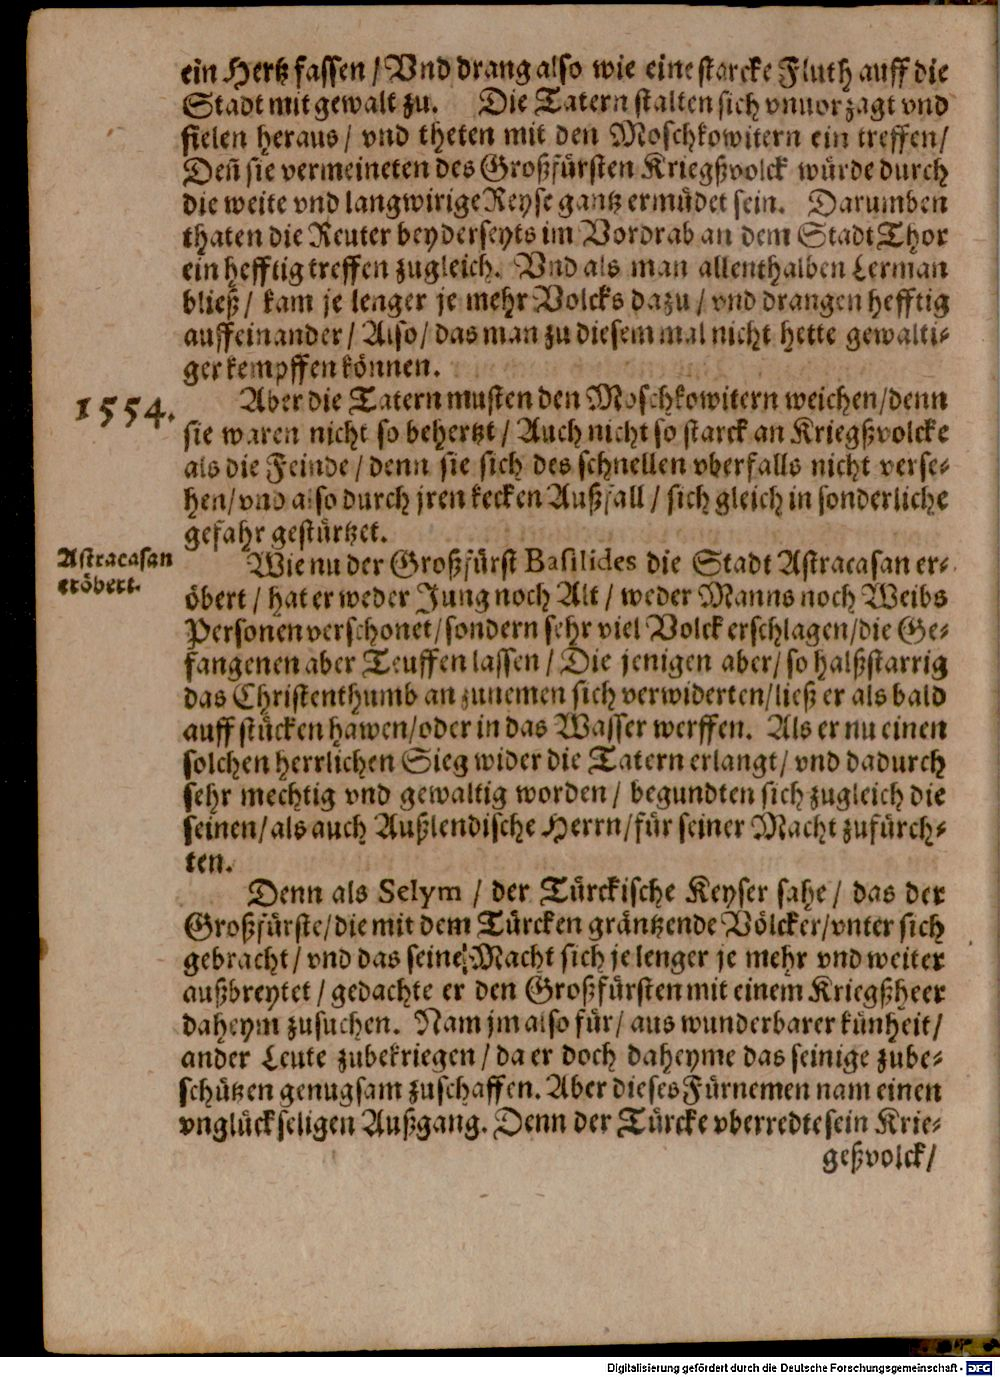 ein Hertz fassen / Vnd drang also wie eine starcke Fluth auff die
Stadt mit gewalt zu. Die Tatern stalten sich vnuorzagt vnd
fielen heraus / vnd theten mit den Moschkowitern ein treffen /
Deñ sie vermeineten des Großfürsten Kriegßvolck würde durch
die weite vnd langwirige Reyse gantz ermüdet sein. Darumben
thaten die Reuter beyderseyts im Vordrab an dem Stadt Thor
ein hefftig treffen zugleich. Vnd als man allenthalben Lerman
bließ / kam je lenger je mehr Volcks dazu / vnd drangen hefftig
auffeinander / Also / das man zu diesem mal nicht hette gewalti-
ger kempffen können.
1554.
Aber die Tatern musten den Moschkowitern weichen / denn
sie waren nicht so behertzt / Auch nicht so starck an Kriegßvolcke
als die Feinde / denn sie sich des schnellen vberfalls nicht verse-
hen / vnd also durch jren kecken Außfall / sich gleich in sonderliche
gefahr gestürtzet.
Astracasan
eröbert.
Wie nu der Großfürst Basilides die Stadt Astracasan er-
öbert / hat er weder Jung noch Alt / weder Manns noch Weibs
Personen verschonet / sondern sehr viel Volck erschlagen / die Ge-
fangenen aber Teuffen lassen / Die jenigen aber / so halßstarrig
das Christenthumb an zunemen sich verwiderten / ließ er als bald
auff stücken hawen / oder in das Wasser werffen. Als er nu einen
solchen herrlichen Sieg wider die Tatern erlangt / vnd dadurch
sehr mechtig vnd gewaltig worden / begundten sich zugleich die
seinen / als auch Außlendische Herrn / für seiner Macht zufürch-
ten.
Denn als Selym / der Türckische Keyser sahe / das der
Großfürste / die mit dem Türcken gräntzende Völcker / vnter sich
gebracht / vnd das seine Macht sich je lenger je mehr vnd weiter
außbreytet / gedachte er den Großfürsten mit einem Kriegßheer
daheym zusuchen. Nam jm also für / aus wunderbarer künheit /
ander Leute zubekriegen / da er doch daheyme das seinige zube-
schützen genugsam zuschaffen. Aber dieses Fürnemen nam einen
vnglückseligen Außgang. Denn der Türcke vberredte sein Krie-
geßvolck /
Digitalisierung gefördert durch die Deutsche Forschungsgemeinschaft - DFG